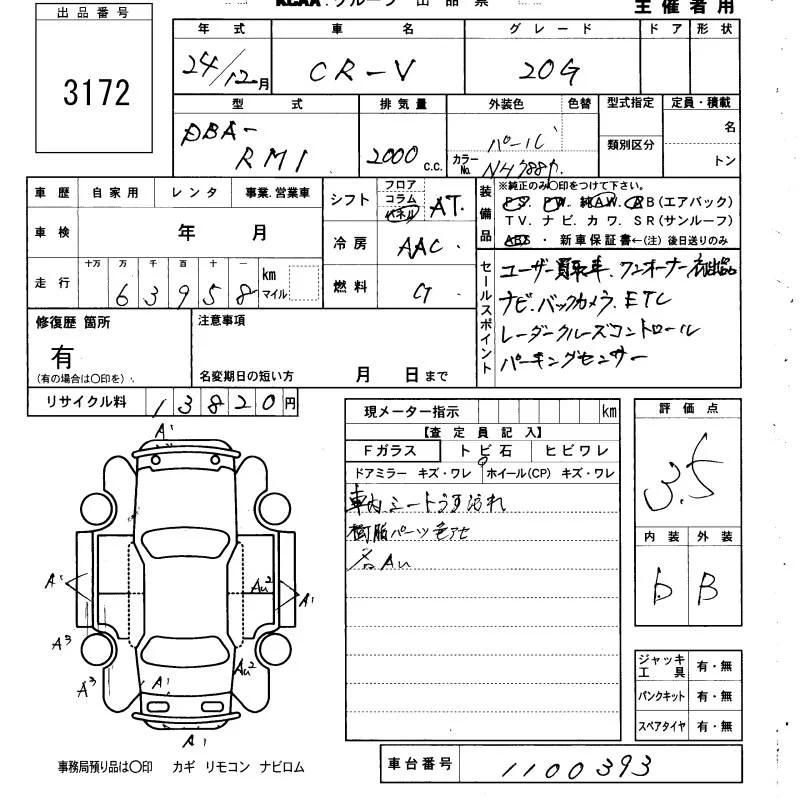 出品番号
KCAA.グループ 出品票
主催者用
3172
年式 車名 グレード ドア 形状
24/12月 CR-V 20G
型式 排気量 外装色 色替 型式指定 定員・積載
DBA-
RM1
2000 c.c.
パール
カラーNo. NH788P
類別区分
名
トン
車歴 自家用 レンタ 事業.営業車
車検 年 月
走行 十万 万 千 百 十 一
63958 km マイル
シフト フロア コラム パネル AT
冷房 AAC
燃料 G
装備品
※純正のみ〇印をつけて下さい。
PS. PW. 純AW. AB(エアバック)
TV. ナビ. カワ. SR(サンルーフ)
ABS ・ 新車保証書←(注) 後日送りのみ
セールスポイント
ユーザー買取車.ワンオーナー
ナビ.バックカメラ.ETC
レーダークルーズコントロール
パーキングセンサー
修復歴 箇所
有
(有の場合は〇印を)
注意事項
名変期日の短い方 月 日まで
リサイクル料 13820円
現メーター指示 km
【査定員記入】
Fガラス トビ石 ヒビワレ
ドアミラー キズ・ワレ ホイール(CP) キズ・ワレ
車内シートうす汚れ
樹脂パーツ色アセ
各AU
評価点
3.5
内装 外装
D B
ジャッキ工具 有・無
パンクキット 有・無
スペアタイヤ 有・無
A1
A1
AU2
A1
A3
A3
A1
AU2
A1
事務局預り品は〇印 カギ リモコン ナビロム
車台番号 1100393